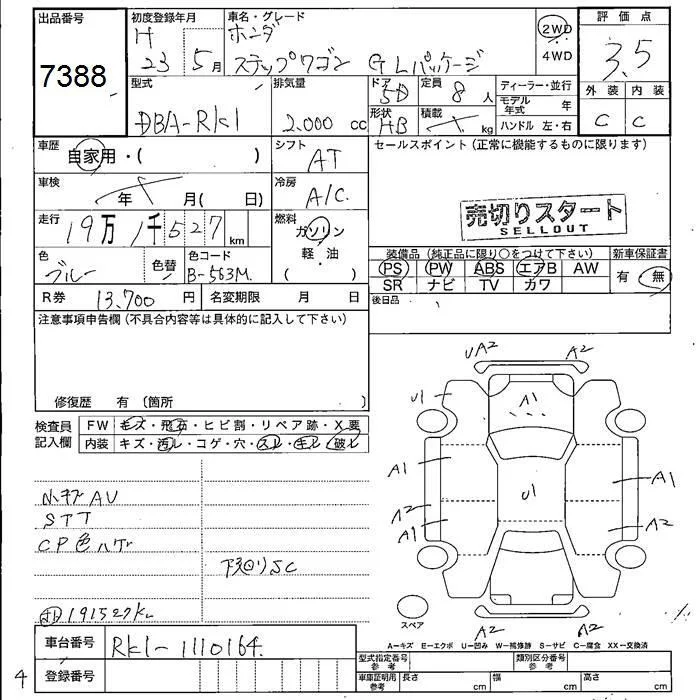 出品番号
7388
初度登録年月
H 23年 5月
車名・グレード
ホンダ
ステップワゴン GLパッケージ
2WD
4WD
評価点
3.5
外装 内装
C C
型式
DBA-RK1
排気量
2.000 cc
ドア 5D
形状 HB
定員 8人
積載 kg
ディーラー・並行
モデル年式 年
ハンドル 左・右
車歴
自家用・( )
シフト
AT
セールスポイント(正常に機能するものに限ります)
車検
年 月( 日)
冷房
A/C
売切りスタート
SELLOUT
走行
19万1千527km
燃料
ガソリン
軽・油
( )
色
ブルー
色替
色コード
B-563M
装備品(純正品に限り○をつけて下さい)
新車保証書
PS PW ABS エアB AW
SR ナビ TV カワ
有 無
R券 13.700円
名変期限 月 日
後日品
注意事項申告欄(不具合内容等は具体的に記入して下さい)
修復歴 有(箇所 )
検査員記入欄
FW キズ・飛石・ヒビ割・リペア跡・X要
内装 キズ・汚レ・コゲ・穴・スレ・モレ・破レ
UA2 A2
U1 A1
A1 U1 A1
A2
A1 A2
A2 A2
スペア
AV
STT
CP色ハゲ
下回りSC
191527km
A=キズ E=エクボ U=凹み W=補修跡 S=サビ C=腐食 XX=交換済
車台番号 RK1-1110164
登録番号
型式指定番号 参考
類別区分番号 参考
車庫証明用 参考
長さ cm 幅 cm 高さ cm
4